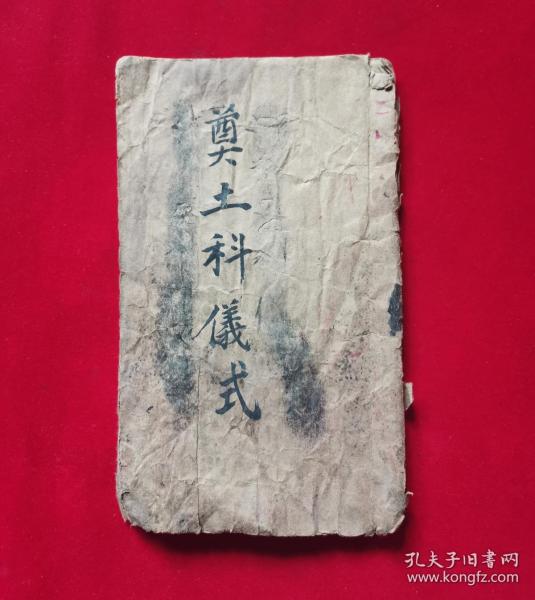 奠土科儀式
孔夫子旧书网
www.kongfz.com